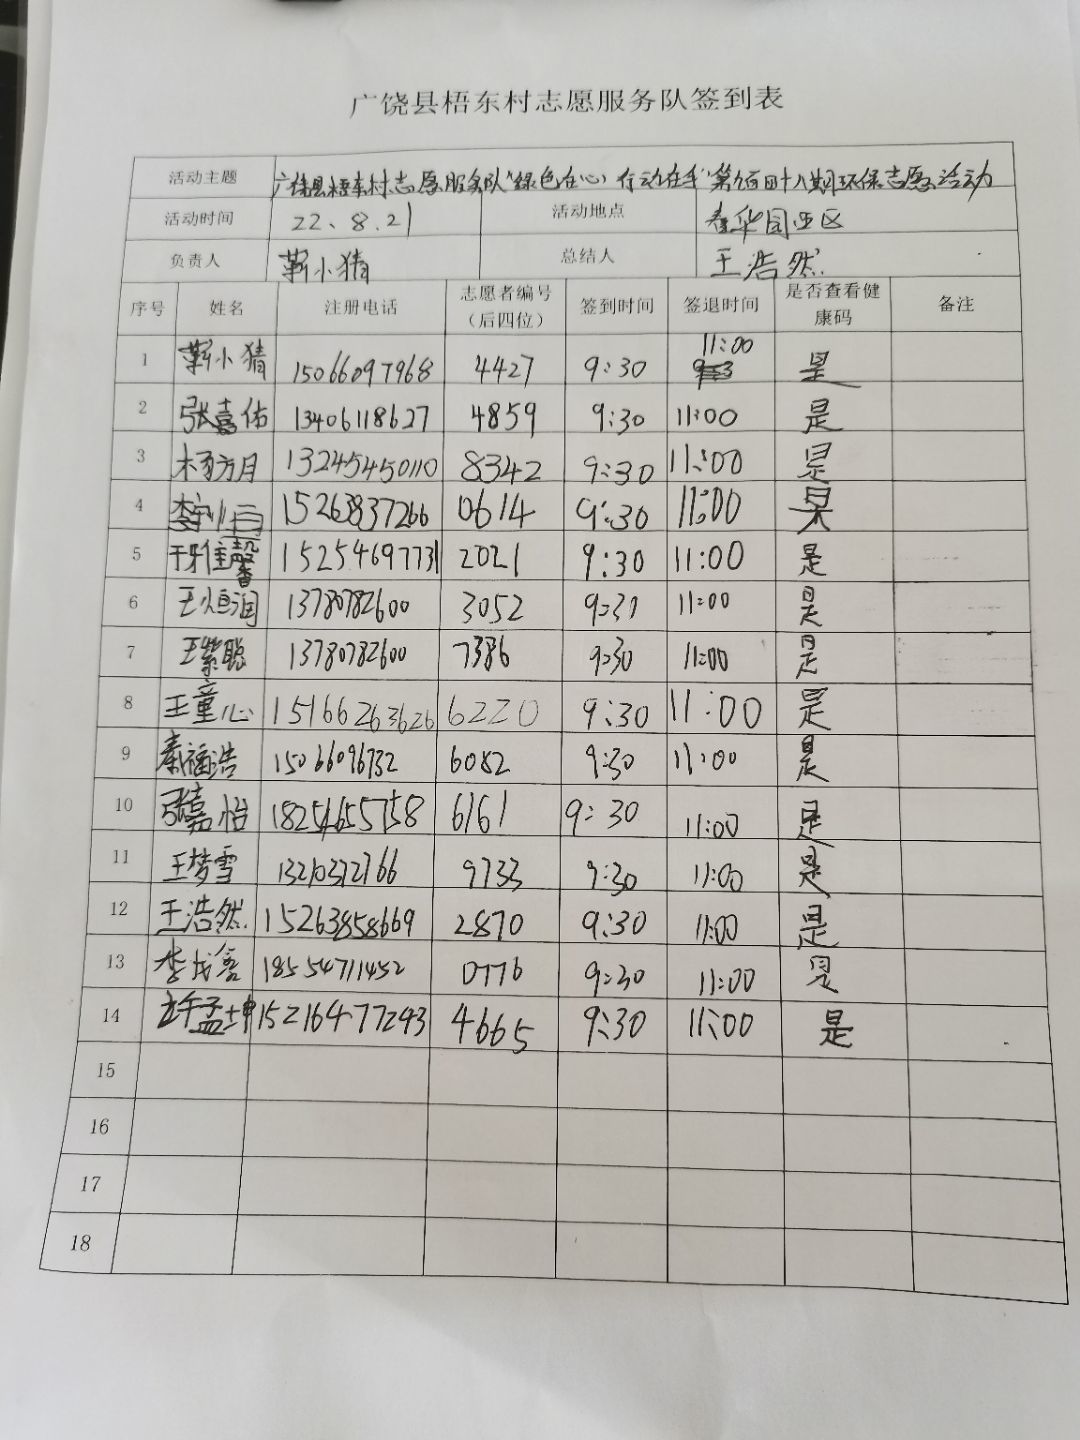 广饶县梧东村志愿服务队签到表
活动主题 广饶县梧东村志愿服务队“绿色在心,行动在手”第九百四十八期环保志愿活动
活动时间 22、8.21 活动地点 春华园西区
负责人 靳小猜 总结人 王浩然
序号 姓名 注册电话 志愿者编号（后四位） 签到时间 签退时间 是否查看健康码 备注
1 靳小猜 15066097968 4427 9:30 11:00 是
2 张嘉佑 13406118627 4859 9:30 11:00 是
3 杨方月 13245450110 8342 9:30 11:00 是
4 15263837266 0614 9:30 11:00 是
5 于雅馨 15254697731 2021 9:30 11:00 是
6 王恒润 13780782600 3052 9:30 11:00 是
7 王紫聪 13780782600 7386 9:30 11:00 是
8 王童心 15166263626 6220 9:30 11:00 是
9 秦福浩 15066096732 6082 9:30 11:00 是
10 张嘉怡 18254655758 6161 9:30 11:00 是
11 王梦雪 13210372766 9733 9:30 11:00 是
12 王浩然 15263858669 2870 9:30 11:00 是
13 18554711452 0776 9:30 11:00 是
14 15216477243 4665 9:30 11:00 是
15
16
17
18